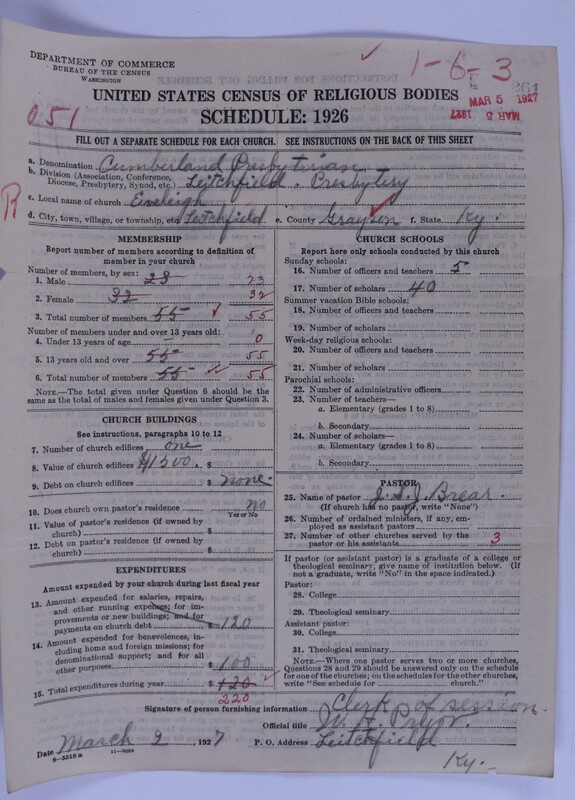 DEPARTMENT OF COMMERCE
BUREAU OF THE CENSUS
WASHINGTON
1-6-3
261
MAR 5 1927
MAR 5 1927
051
UNITED STATES CENSUS OF RELIGIOUS BODIES
SCHEDULE: 1926
FILL OUT A SEPARATE SCHEDULE FOR EACH CHURCH. SEE INSTRUCTIONS ON THE BACK OF THIS SHEET
R
a. Denomination Cumberland Presbyterian
b. Division (Association, Conference, Diocese, Presbytery, Synod, etc.) Leitchfield. Presbytery
c. Local name of church Eveleigh
d. City, town, village, or township, etc. Leitchfield e. County Grayson f. State Ky.
MEMBERSHIP
Report number of members according to definition of member in your church
Number of members, by sex:
1. Male 23 23
2. Female 32 32
3. Total number of members 55 55
Number of members under and over 13 years old:
4. Under 13 years of age — 0
5. 13 years old and over 55 55
6. Total number of members 55 55
NOTE.—The total given under Question 6 should be
same as the total of males and females given under Question 3.
CHURCH BUILDINGS
See instructions, paragraphs 10 to 12
7. Number of church edifices one
8. Value of church edifices $1500. $
9. Debt on church edifices $ none.
10. Does church own pastor's residence no
Yes or No
11. Value of pastor's residence (if owned by
church) $
12. Debt on pastor's residence (if owned by
church) $
EXPENDITURES
Amount expended by your church during last fiscal year
13. Amount expended for salaries, repairs,
and other running expenses; for im-
provements or new buildings; and for
payments on church debt $ 120
14. Amount expended for benevolences, in-
cluding home and foreign missions; for
denominational support; and for all
other purposes $ 100
15. Total expenditures during year $ 120
220
CHURCH SCHOOLS
Report here only schools conducted by this church
Sunday schools:
16. Number of officers and teachers 5
17. Number of scholars 40
Summer vacation Bible schools:
18. Number of officers and teachers
19. Number of scholars
Week-day religious schools:
20. Number of officers and teachers
21. Number of scholars
Parochial schools:
22. Number of administrative officers
23. Number of teachers—
a. Elementary (grades 1 to 8)
b. Secondary
24. Number of scholars—
a. Elementary (grades 1 to 8)
b. Secondary
PASTOR
25. Name of pastor J.
(If church has no pastor, write "None")
26. Number of ordained ministers, if any, em-
ployed as assistant pastors
27. Number of other churches served by the
pastor or his assistants 3
If pastor (or assistant pastor) is a graduate of a college or
theological seminary, give name of institution below. (If
not a graduate, write "No" in the space indicated.)
Pastor:
28. College
29. Theological seminary
Assistant pastor:
30. College
31. Theological seminary
NOTE.—Where one pastor serves two or more churches,
Questions 28 and 29 should be answered only on the schedule
for one of the churches; on the schedules for the other churches,
write "See schedule for church."
Signature of person furnishing information Clerk of session.
Official title W.
Date March 2, 1927 P. O. Address Leitchfield
Ky.
8-5318a 11-9084